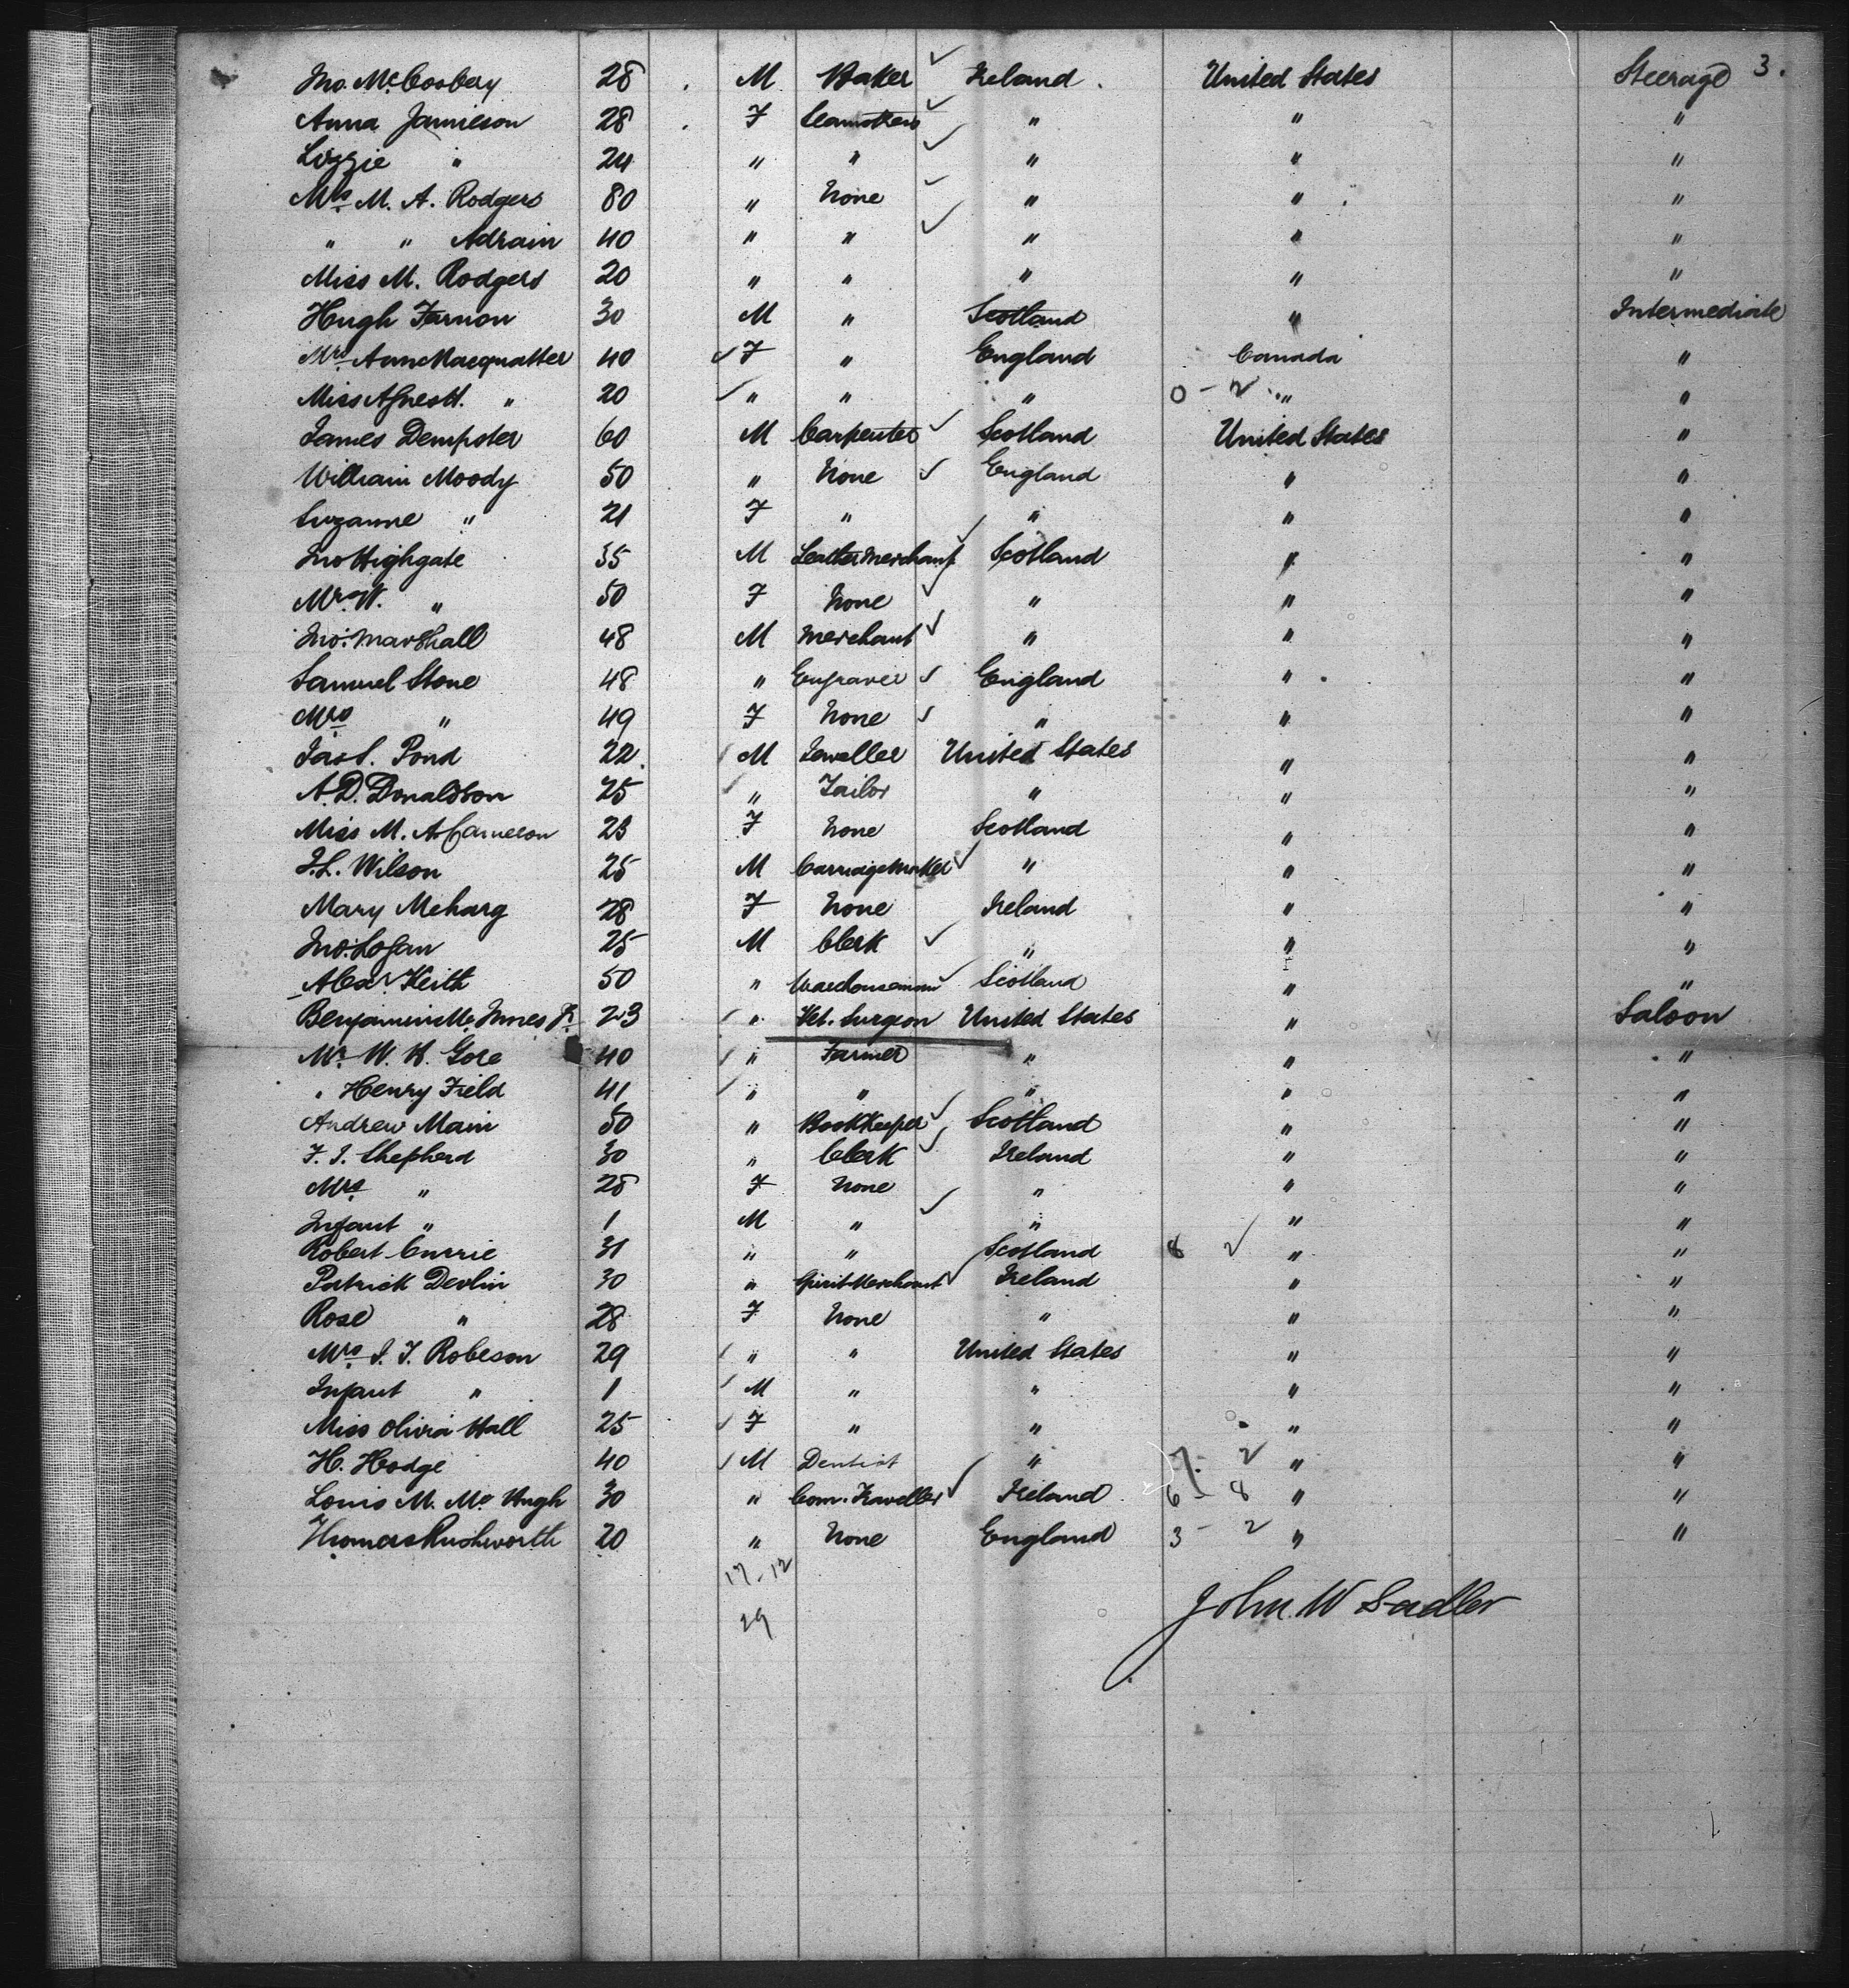 3.
Jno. McCosbery 28 M Baker Ireland United States Steerage
Anna Jamieson 28 F Seamstress " " "
Lizzie " 24 " " " " "
Mrs M. A. Rodgers 80 " None " " "
" " Adrain 40 " " " " "
Miss M. Rodgers 20 " " " " "
Hugh Farnon 30 M " Scotland " Intermediate
Mrs Ann Macquatter 40 F " England Canada "
Miss Agnes H. " 20 " " " 0 - 2 " "
James Dempster 60 M Carpenter Scotland United States "
William Moody 50 " None England " "
Suzanne " 21 F " " " "
Jno Highgate 35 M Leather Merchant Scotland " "
Mrs W. " 50 F None " " "
Jno. Marshall 48 M Merchant " " "
Samuel Stone 48 " Engraver England " "
Mrs " 49 F None " " "
Jas S. Pond 22 M Jeweller United States " "
A. D. Donaldson 25 " Tailor " " "
Miss M. A. Cameron 23 F None Scotland " "
J. L. Wilson 25 M Carriage Maker " " "
Mary Meharg 28 F None Ireland " "
Jno. Logan 25 M Clerk " " "
Alexr Keith 50 " Warehouseman Scotland " "
Benjamin McInnes Jr 23 " Vet. Surgeon United States " Saloon
Mr W. K. Gore 40 " Farmer " " "
" Henry Field 41 " " " " "
Andrew Main 50 " Bookkeeper Scotland " "
F. J. Shepherd 30 " Clerk Ireland " "
Mrs " 28 F None " " "
Infant " 1 M " " " "
Robert Currie 31 " " Scotland 8 2 " "
Patrick Devlin 30 " Spirit Merchant Ireland " "
Rose " 28 F None " " "
Mrs S. T. Robeson 29 " " United States " "
Infant " 1 M " " " "
Miss Olivia Hall 25 F " " " "
H. Hodge 40 M Dentist " 7 - 2 " "
Louis M. McHugh 30 " Com. Traveller Ireland 6 - 8 " "
Thomas Rushworth 20 " None England 3 - 2 " "
17 - 12
29
John. W Sadler